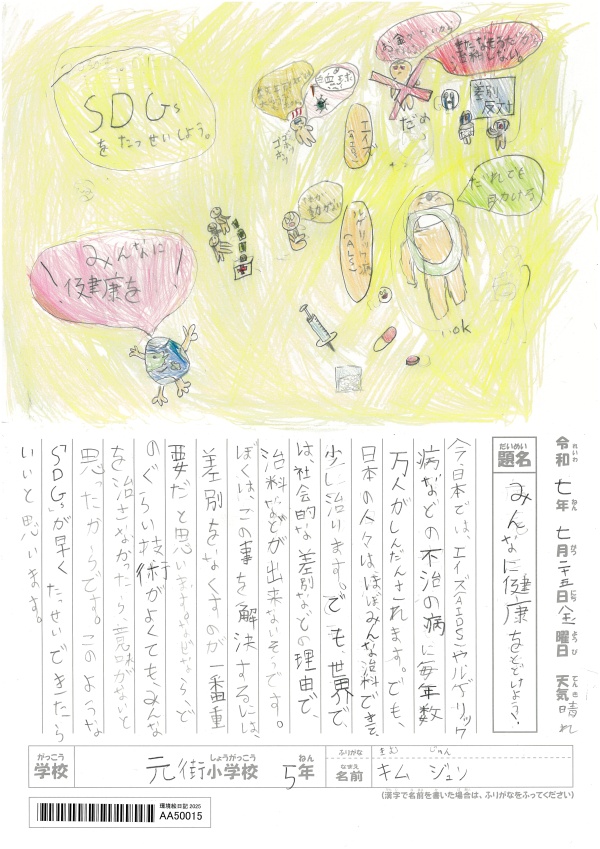 SDGs
をたっせいしよう。
みんなに
健康を
だめ
差別
反対
エイズ
(AIDS)
ルゲリック病
(ALS)
だれでも
助ける
ok
令和七年七月二十五日金曜日 天気晴れ
れいわ ねん がつ にち ようび てんき
だいめい
題名
みんなに健康をとどけよう！
今、日本では、エイズ(AIDS)やルゲリック
病などの不治の病に毎年数
万人がしんだんされます。でも、
日本の人々はほぼみんな治料できて、
少し治ります。でも、世界で
は、社会的な差別などの理由で、
治料などが出来ないそうです。
ぼくは、この事を解決するには、
差別をなくすのが一番重
要だと思います。なぜなら、ど
のぐらい技術がよくても、みんな
を治さなかったら、意味がないと
思ったからです。このような
「SDGs」が早くたっせいできたら
いいと思います。
がっこう しょうがっこう ねん
学校 元街小学校 5年
ふりがな きむ じゅん
なまえ
名前 キム ジュン
(漢字で名前を書いた場合は、ふりがなをふってください)
環境絵日記 2025
AA50015